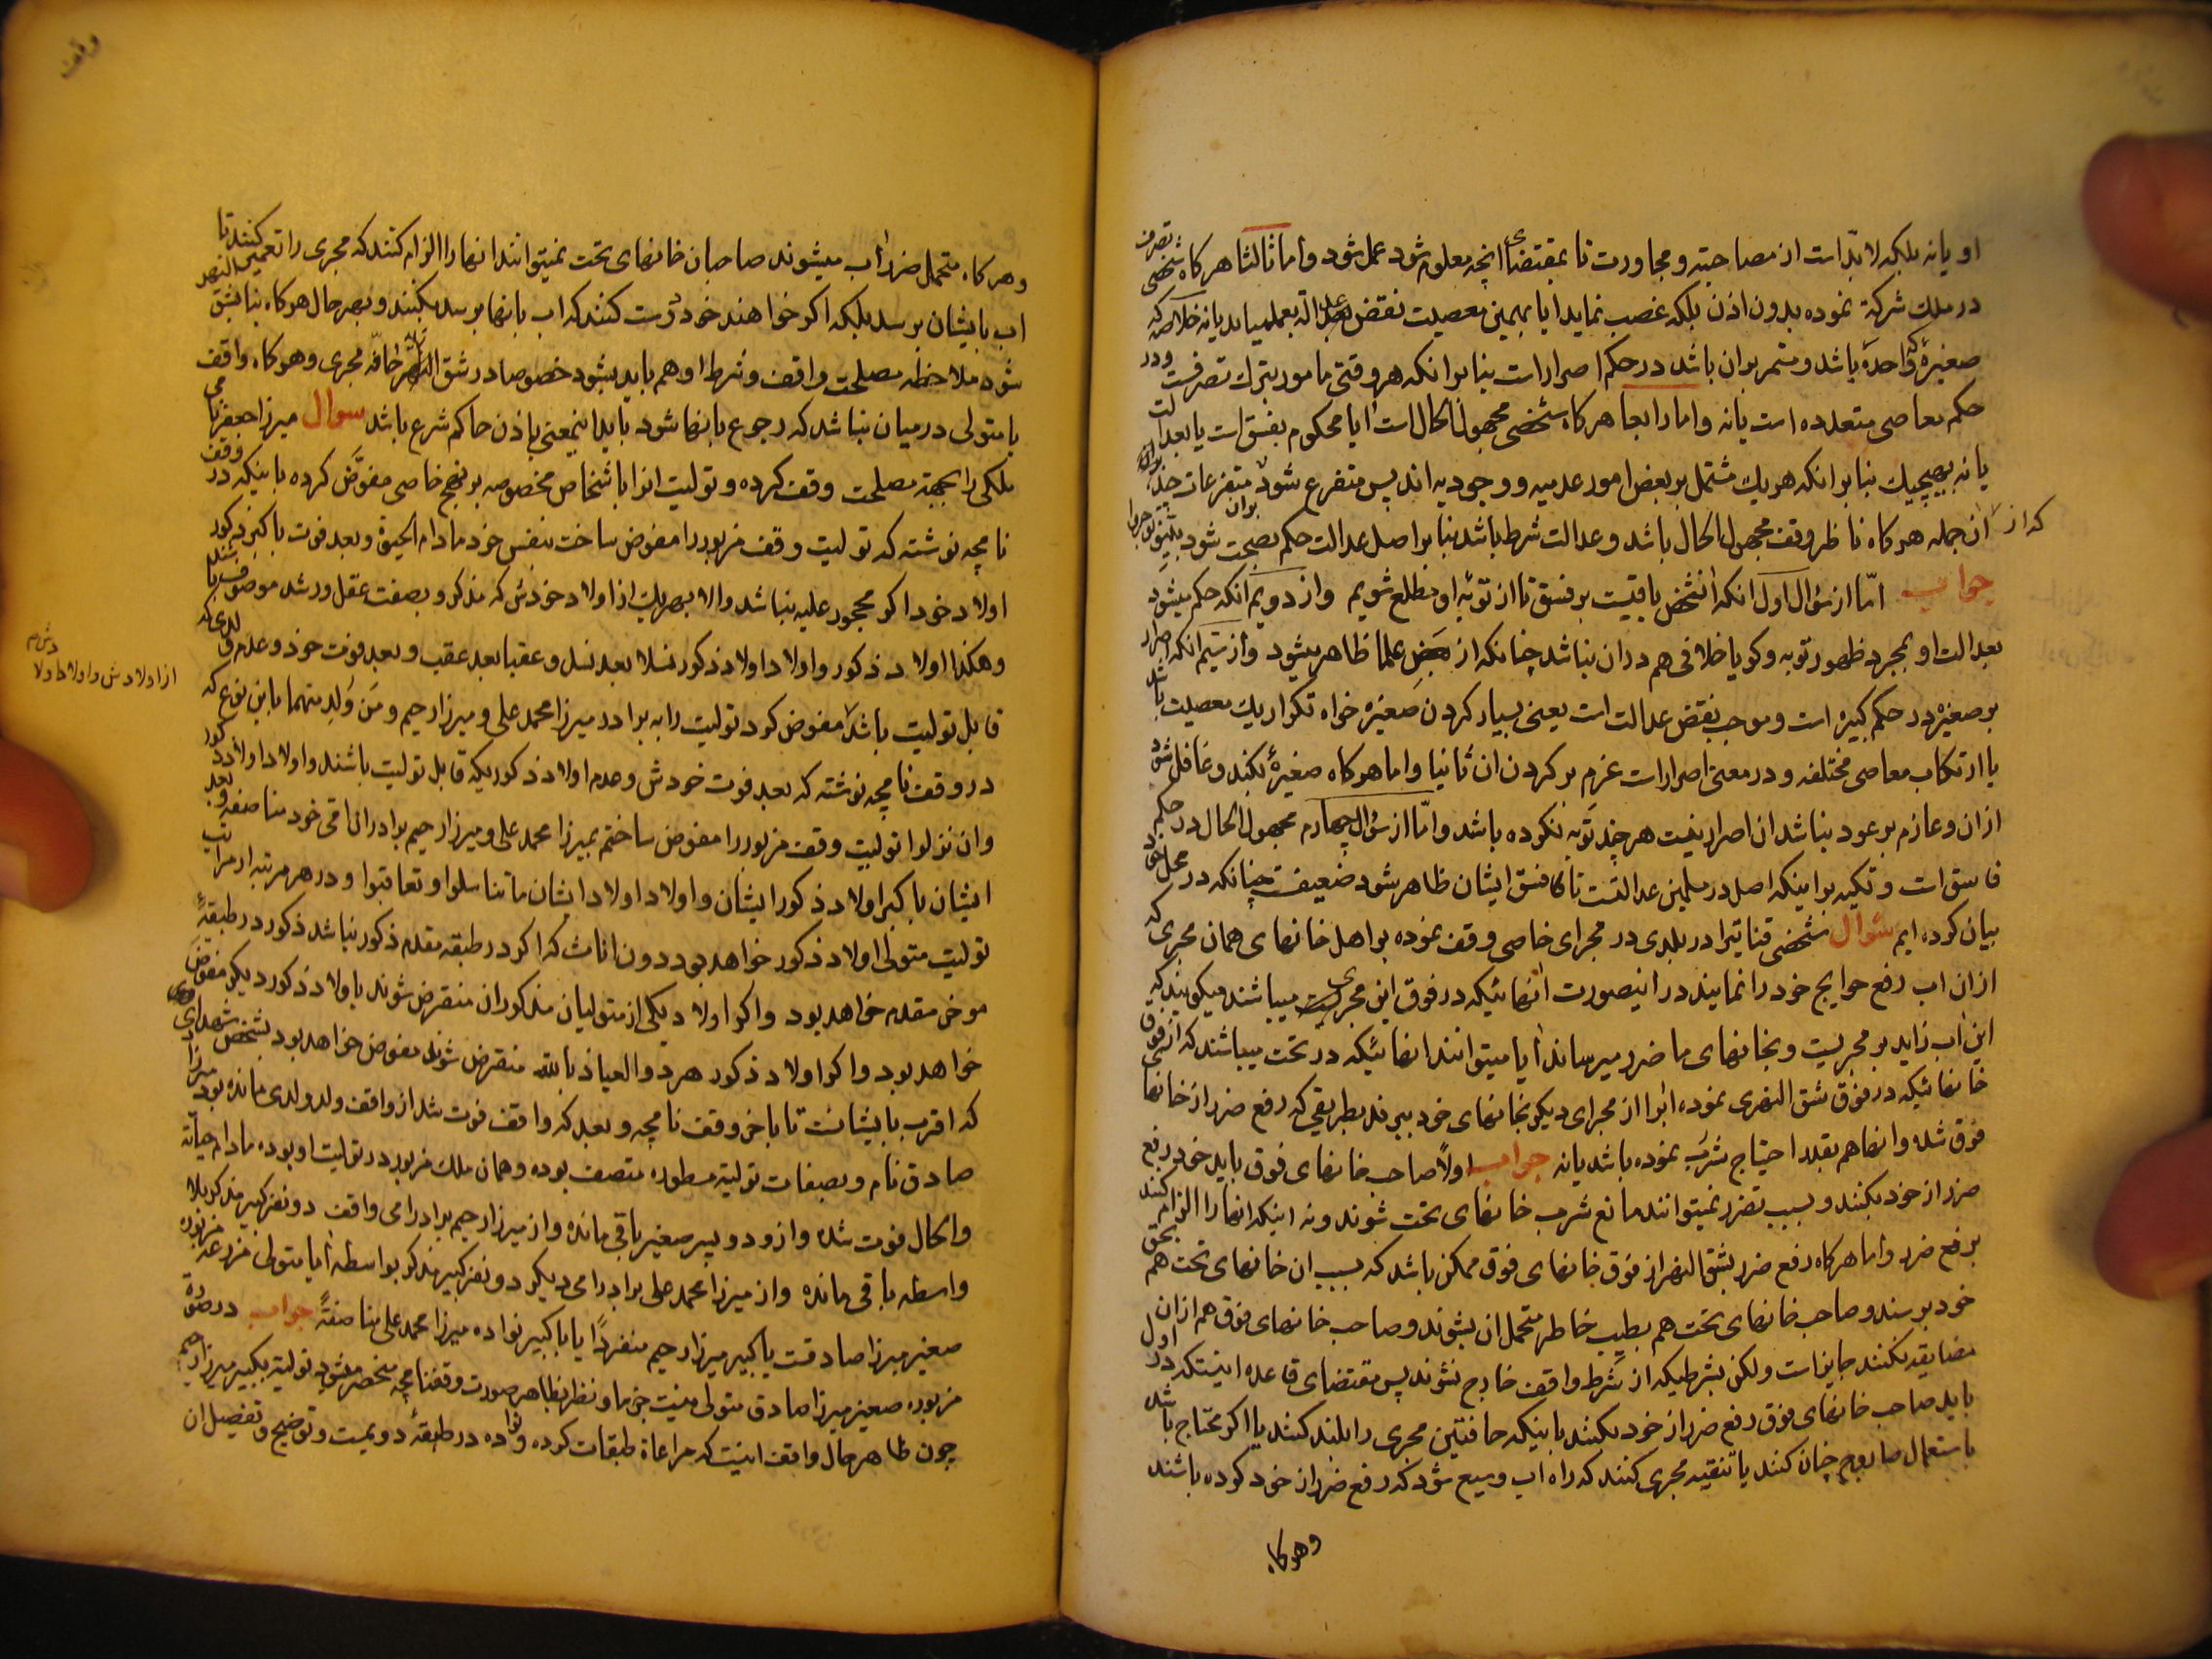 او یا نه بلکه لابد است از مصاحبته و مجاورت تا بمقتضای آنچه معلوم شود عمل شود و اما ثالثا هرکاه شخصی تصرف
در ملک شرکة نموده بدون اذن بلکه غصب نماید ایا بهمین معصیت نقض عدالة بعمل میاید یا نه خلاصه که
صغیرهٔ واحدهٔ باشد و مستمر بر ان باشد در حکم اصرار است بنا بر انکه هر وقتی مامور بترک تصرفست و در
حکم معاصی متعدده است یا نه و اما رابعا هرکاه شخصی مجهول الحال است ایا محکوم بفسق است یا بعدالت
یا نه بهیچیک بنا بر انکه هر یک مشتمل بر بعض امور عدمیه و وجودیه اند پس متفرع شود بر ان متفرعات چند
که از ان جمله هرکاه ناظر وقف مجهول الحال باشد و عدالت شرط باشد بنا بر اصل عدالت حکم بصحت شود
جواب اما از سؤال اول انکه انشخص باقیست بر فسق تا از توبهٔ او مطلع شویم و از دویم انکه حکم میشود
بعدالت او بمجرد ظهور توبه و کویا خلافی هم در ان نباشد چنانکه از بعض علما ظاهر میشود و از سیم انکه اصرار
بر صغیره در حکم کبیره است و موجب نقض عدالت است یعنی بسیار کردن صغیره خواه تکرار یک معصیت باشد
یا ارتکاب معاصی مختلفه و در معنی اصرار است عزم بر کردن ان ثانیا و اما هرکاه صغیرهٔ بکند و غافل شود
از ان و عازم بر عود نباشد ان اصرار نیست هر چند توبه نکرده باشد و اما از سؤال چهارم مجهول الحال در حکم
فاسق است و تکیه بر اینکه اصل در مسلمین عدالتست تا که فسق ایشان ظاهر شود ضعیفست چنانکه در محل خود
بیان کرده ایم سؤال شخصی قناتیرا در بلدی در مجرای خاصی وقف نموده بر اهل خانهای همان مجری که
از ان اب رفع حوایج خود را نمایند در اینصورت انهائیکه در فوق این مجری میباشند میکویند که
این اب زاید بر مجریست و بخانهای ما ضرر میرساند ایا میتوانند انهائیکه در تحت میباشند که از فوق
خانهائیکه در فوق شق النهری نموده ابرا از مجرای دیکر بخانهای خود ببرند بطریقی که رفع ضرر از خانهای
فوق شده و انها هم بقدر احتیاج شرب نموده باشد یا نه جواب اولا صاحب خانهای فوق باید خود رفع
ضرر از خود بکنند و بسبب تضرر نمیتوانند مانع شرب خانهای تحت شوند و نه اینکه انها را الزام کنند
بر فع ضرر و اما هرکاه رفع ضرر بشق النهر از فوق خانهای فوق ممکن باشد که بسبب ان خانهای تحت هم بحق
خود برسند و صاحب خانهای تحت هم بطیب خاطر متحمل ان بشوند و صاحب خانهای فوق هم از ان
مضایقه نکنند جایز است ولکن بشرطیکه از شرط واقف خارج نشوند پس مقتضای قاعده اینستکه در اول
باید صاحب خانهای فوق رفع ضرر از خود بکنند باینکه حافتین مجری را بلند کنند یا اکر محتاج باشد
باستعمال صاروج چنان کنند یا تنقیه مجری کنند که راه اب وسیع شود که رفع ضرر از خود کرده باشند
وهرکاه
وقف
و هرکاه متحمل ضرر اب میشوند صاحبان خانهای تحت نمیتوانند انها را الزام کنند که مجری را تعمیر کنند تا
اب بایشان برسد بلکه اکر خواهند خود درست کنند که اب بانها برسد بکنند و بهر حال هرکاه بنا بشق النهر
شود ملاحظه مصلحت واقف و شرط او هم باید بشود خصوصا در شق النهر حافه مجری و هرکاه واقف
یا متولی در میان نباشد که رجوع بانها شود باید اینمعنی باذن حاکم شرع باشد سوال میرزا جعفر نامی
ملکی را بجهة مصلحت وقف کرده و تولیت انرا باشخاص مخصوصه بر نهج خاصی مفوض کرده باینکه در وقف
نامچه نوشته که تولیت وقف مزبور را مفوض ساخت بنفس خود مادام الحیوة و بعد فوت باکبر ذکور
اولاد خود اکر محجور علیه نباشد والا بهر یک از اولاد خودش که مذکر و بصفت عقل و رشد موصوف باشند
و هکذا اولاد ذکور و اولاد اولاد ذکور نسلا بعد نسل و عقبا بعد عقب و بعد فوت خود و عدم ولدی که
از اولادش و اولاد اولادش
قابل تولیت باشد مفوض کرد تولیت را به برادر میرزا محمد علی و میرزا رحیم و من ولد منهما باین نوع که
در وقف نامچه نوشته که بعد فوت خودش و عدم اولاد ذکوریکه قابل تولیت باشند و اولاد اولاد ذکور
وان نزلوا تولیت وقف مزبور را مفوض ساختم بمیرزا محمد علی و میرزا رحیم برادران امی خود مناصفه و بعد
ایشان باکبر اولاد ذکور ایشان و اولاد اولاد ایشان ما تناسلوا و تعاقبوا و در هر مرتبه از مراتب
تولیت متولی اولاد ذکور خواهد بود دون اناث که اکر در طبقه مقدم ذکور نباشد ذکور در طبقهٔ
موخر مقدم خواهد بود و اکر اولاد یکی از متولیان مذکوران منقرض شوند باولاد ذکور دیکر مفوض
خواهد بود و اکر اولاد ذکور هر دو العیاذ بالله منقرض شوند مفوض خواهد بود بشخص
که اقرب بایشانست تا باخر وقف نامچه و بعد که واقف فوت شد از واقف ولد ولدی مانده بود میرزا
صادق نام و بصفات تولیة مسطوره متصف بوده و همان ملک مزبور در تولیت او بوده مادام حیاته
والحال فوت شده و از او دو پسر صغیر باقی مانده و از میرزا رحیم برادر امی واقف دو نفر کبیر مذکر بلا
واسطه باقی مانده و از میرزا محمد علی برادر امی دیکر دو نفر کبیر مذکر بواسطه ایا متولی مزرعه مزبوره
صغیر میرزا صادقست یا کبیر میرزا رحیم منفردا یا با کبیر نواده میرزا محمد علی مناصفة جواب در صورة
مزبوره صغیر میرزا صادق متولی نیست جزما و نظر بظاهر صورت وقفنامچه منحصر میشود تولیة بکبیر میرزا رحیم
چون ظاهر حال واقف اینست که مراعاة طبقات کرده و نواده در طبقهٔ دویمست و توضیح و تفصیل ان